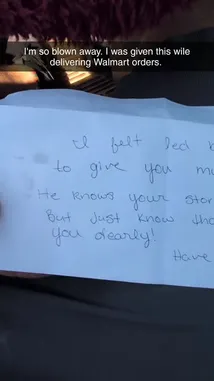 I'm so blown away. I was given this wile
delivering Walmart orders.
I felt led
to give you
He knows your
But just know
you dearly!
Have